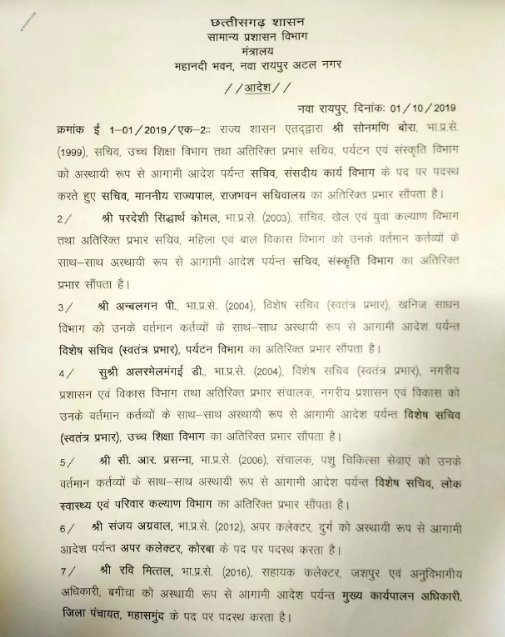 छत्तीसगढ़ शासन
सामान्य प्रशासन विभाग
मंत्रालय
महानदी भवन, नवा रायपुर अटल नगर
//आदेश//
नवा रायपुर, दिनांकः 01/10/2019
क्रमांक ई 1-01/2019/एक-2:: राज्य शासन एतद्द्वारा श्री सोनमणि बोरा, भा.प्र.से.
(1999), सचिव, उच्च शिक्षा विभाग तथा अतिरिक्त प्रभार सचिव, पर्यटन एवं संस्कृति विभाग
को अस्थायी रूप से आगामी आदेश पर्यन्त सचिव, संसदीय कार्य विभाग के पद पर पदस्थ
करते हुए सचिव, माननीय राज्यपाल, राजभवन सचिवालय का अतिरिक्त प्रभार सौंपता है।
2/ श्री परदेशी सिद्धार्थ कोमल, भा.प्र.से. (2003), सचिव, खेल एवं युवा कल्याण विभाग
तथा अतिरिक्त प्रभार सचिव, महिला एवं बाल विकास विभाग को उनके वर्तमान कर्तव्यों के
साथ-साथ अस्थायी रूप से आगामी आदेश पर्यन्त सचिव, संस्कृति विभाग का अतिरिक्त
प्रभार सौंपता है।
3/ श्री अन्बलगन पी., भा.प्र.से. (2004), विशेष सचिव (स्वतंत्र प्रभार), खनिज साधन
विभाग को उनके वर्तमान कर्तव्यों के साथ-साथ अस्थायी रूप से आगामी आदेश पर्यन्त
विशेष सचिव (स्वतंत्र प्रभार), पर्यटन विभाग का अतिरिक्त प्रभार सौंपता है।
4/ सुश्री अलरमेलमंगई डी., भा.प्र.से. (2004), विशेष सचिव (स्वतंत्र प्रभार), नगरीय
प्रशासन एवं विकास विभाग तथा अतिरिक्त प्रभार संचालक, नगरीय प्रशासन एवं विकास को
उनके वर्तमान कर्तव्यों के साथ-साथ अस्थायी रूप से आगामी आदेश पर्यन्त विशेष सचिव
(स्वतंत्र प्रभार), उच्च शिक्षा विभाग का अतिरिक्त प्रभार सौंपता है।
5/ श्री सी. आर. प्रसन्ना, भा.प्र.से. (2006), संचालक, पशु चिकित्सा सेवाएं को उनके
वर्तमान कर्तव्यों के साथ-साथ अस्थायी रूप से आगामी आदेश पर्यन्त विशेष सचिव, लोक
स्वास्थ्य एवं परिवार कल्याण विभाग का अतिरिक्त प्रभार सौंपता है।
6/ श्री संजय अग्रवाल, भा.प्र.से. (2012), अपर कलेक्टर, दुर्ग को अस्थायी रूप से आगामी
आदेश पर्यन्त अपर कलेक्टर, कोरबा के पद पर पदस्थ करता है।
7/ श्री रवि मित्तल, भा.प्र.से. (2016), सहायक कलेक्टर, जशपुर एवं अनुविभागीय
अधिकारी, बगीचा को अस्थायी रूप से आगामी आदेश पर्यन्त मुख्य कार्यपालन अधिकारी,
जिला पंचायत, महासमुंद के पद पर पदस्थ करता है।